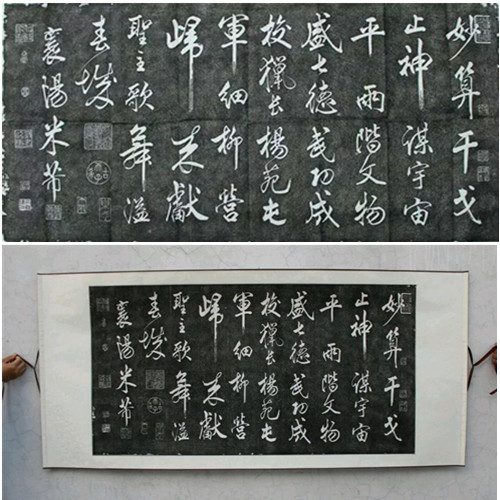 妙算干戈
止神謀宇宙
平兩階文物
盛七德武功成
校獵長楊苑屯
軍細柳營
歸來獻
聖主歌舞溢
春城
襄陽米芾
妙算干戈
止神謀宇宙
平兩階文物
盛七德武功成
校獵長楊苑屯
軍細柳營
歸來獻
聖主歌舞溢
春城
襄陽米芾